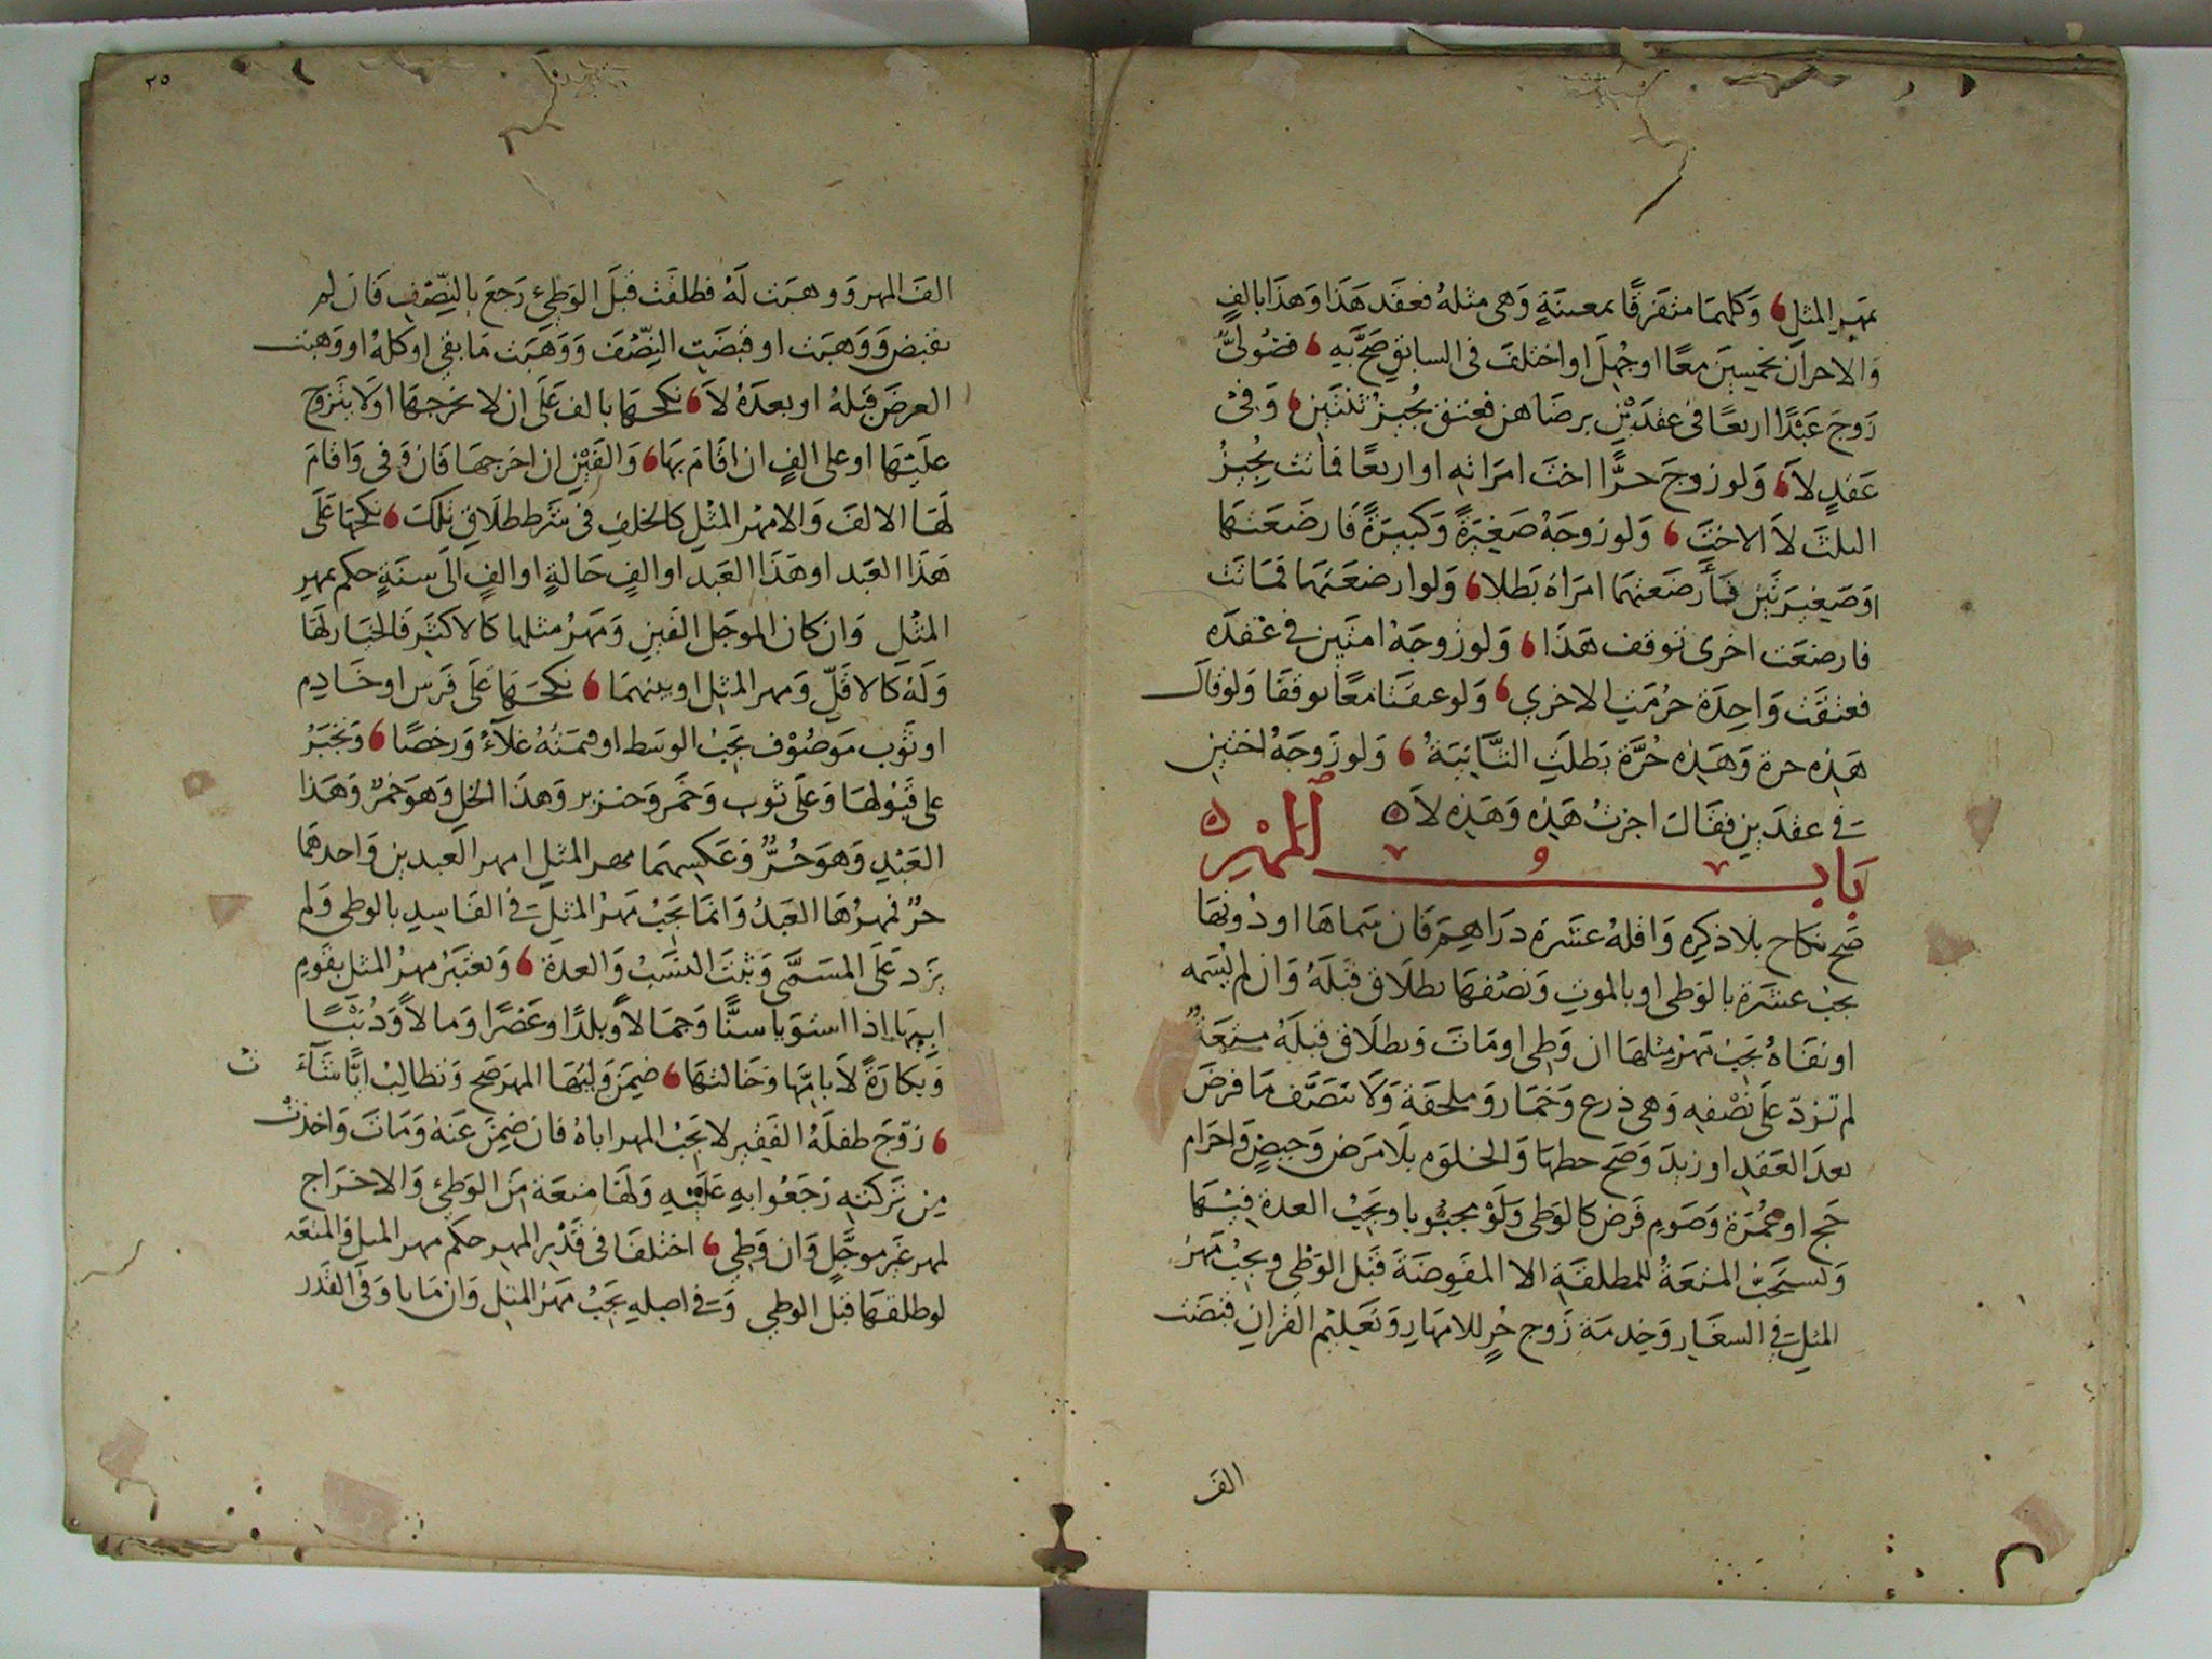 بمَهرِ المثلِ، وَكلهمَا متفَرقًا بمعينَةٍ وَهى مثلهُ فعقَد هَذا وَهذَا بالفٍ
وَالاخرَان بخمسِينَ معًا اوجُهلَ او اختلفَ فى السابقِ صَحَّ بَيه، فضُولىٌّ
زوجَ عَبْدًا اربعًا فى عقدَيْنِ برضَاهن فعتق يُجيزُ ثنتَينِ، وَفىْ
عَقدٍ لاَ، وَلوزوجَ حرًّا اختَ امرَاتهِ او اربعًا فماتت يجِيزُ
الىلثَ لاَ الاختَ، وَلوزوجَهُ صَغِيرَةً وَكبيَرةً فارضَعَتهَا
اوصَغيرَتَينِ فأرضَعتهمَا امرَاة بَطلا، وَلوارضعَتهَا فمَاتت
فارضعَت اخرى توقف هَذَا، وَلوزوجَهُ امتَين فى عَقدَه
فعتقَت وَاحِدَة حرُمَتِ الاخرى، وَلوعىقَتا معًا توقفَا وَلوقالَ
هَذِه حرة وَهَذِه حُرَّة بَطلَتِ الثَّانيَةُ، وَلوزوجَهُ اختينِ
فى عقدَينِ فقالَ اجزتُ هَذِه وَهَذِه لاَ ه
بَابُ المَهْرِ ه
صَح نكاح بلاَ ذكرِه وَاقلهُ عشَرة دَرَاهِمَ فان سَماهَا اودُونهَا
يجبُ عشَرة بالوَطىِ اوبالموتِ وَنصْفهَا بطلَاق قبْلَهُ وَان لم يُسَمه
اونفَاهُ يَجبُ مَهرُ مِثلهَا ان وَطِى اومَاتَ وَبطلَاق قبْلَهُ متعَةٌ
لم تزدّ عَلى نصْفهِ وَهى درع وَخمَار وَمِلحَفَة وَلاَ تتَصَّف مَا فرضَ
بعدَ العَقدِ اوزيدَ وَصَح حطهَا وَالخلوَه بلَا مَرَض وَحيضٍ وَاحرَام
حَج اوعُمْرَة وَصَومِ فَرض كالوَطى وَلَوْ مجبُوبا ويَجبُ العدة فيْهَا
وَتستَحَبُّ المتعَةُ للمطلقَةِ الا المفَوضَة قبْل الوَطْىِ ويجبُ مَهرُ
المثلِ فى الشغَار وَخِدمَة زَوج حُرٍ للامهَارِ وَتَعليْم القرانِ قبَضَت
الفَ
٢٥
الفَ المهر وَوهبَت لَهُ فطلقَت قبْلَ الوَطىِء رَجعَ بالنِصْفِ فان لم
تقبض وَوَهبَت اوقبضَتِ النِصْفَ وَوَهَبَت مَا بقى اوكلهُ اووَهبَت
العرضَ قبْلهُ اوبعدَهُ لاَ، نكحهَا بالف عَلَى ان لا يخرجهَا اولَا يتزوج
علَيْهَا اوعلى الفٍ ان اقامَ بهَا، وَالفَيْنِ ان اخرجهَا فان وَفى وَاقامَ
لهَا الالفَ وَالا مهْر المثْلِ كالخلفِ فى شرَط طلَاقِ تلكَ، نكحهَا عَلَى
هَذا العَبد اوهَذا العَبد اوالفٍ حَالةٍ اوالفٍ الَى سنَةٍ حكم بمهرِ
المثْل وَان كان الموجَل الفَين وَمَهرُ مثلها كالاكثَر فالخيَار لهَا
وَلهُ كالاقلّ وَمهر المثلِ اوبينهمَا، نكحهَا عَلى فَرس اوخَادِم
اوثَوب مَوصُوْف يَجبُ الوسَط اوقيمَتُهُ غلاَءً وَرخصًا، وَتجبَرُ
على قبُولهَا وَعَلى ثوب وَخمَر وَخنزير وَهذَا الخلِ وَهوَ خمرٌ وَهَذا
العَبْدِ وَهوَ حُرٌّ وَعَكسِهمَا مهر المثلِ امهر العبدين وَاحدهمَا
حرٌ فمهرُهَا العَبدُ وَانمَا يَجبُ مَهرُ المثلِ فى الفَاسِدِ بالوطىِ وَلم
يزَد عَلَى المسَمَّى وَثبتَ النسَبُ وَالعدة، وَيعتبَرُ مهرُ المثلِ بقَومِ
ابيهَا اذا استوَيا سنًّا وَجمَالاً وبلدًا وعَصْرًا وَمالاً وَدُنيْيًا
وَبكارَةً لَا بامّها وَخَالتهَا، ضمِنَ وَليّهَا المهرَ صَح وَتطالبُ ايًّا شَاءَت
، زوّجَ طفلَهُ الفَقير لا يَجبُ المهر اباهُ فان ضمِنَ عَنهُ وَمَاتَ وَاخذتْ
مِن تَركتهِ رَجَعُوا بهِ عَلَيْهِ وَلهَا منعَهُ مَن الوَطىِء وَالاخرَاج
لمهر غَير موجَّلٍ وَان وَطِىَ، اختلفَا فى قَدْرِ المهرِ حكم مهر المثلِ وَالمتعَه
لوطلقهَا قبْل الوطىِ وَفى اصلهِ يَجَبُ مَهرُ المثلِ وَان مَاتا وَفى القَدر